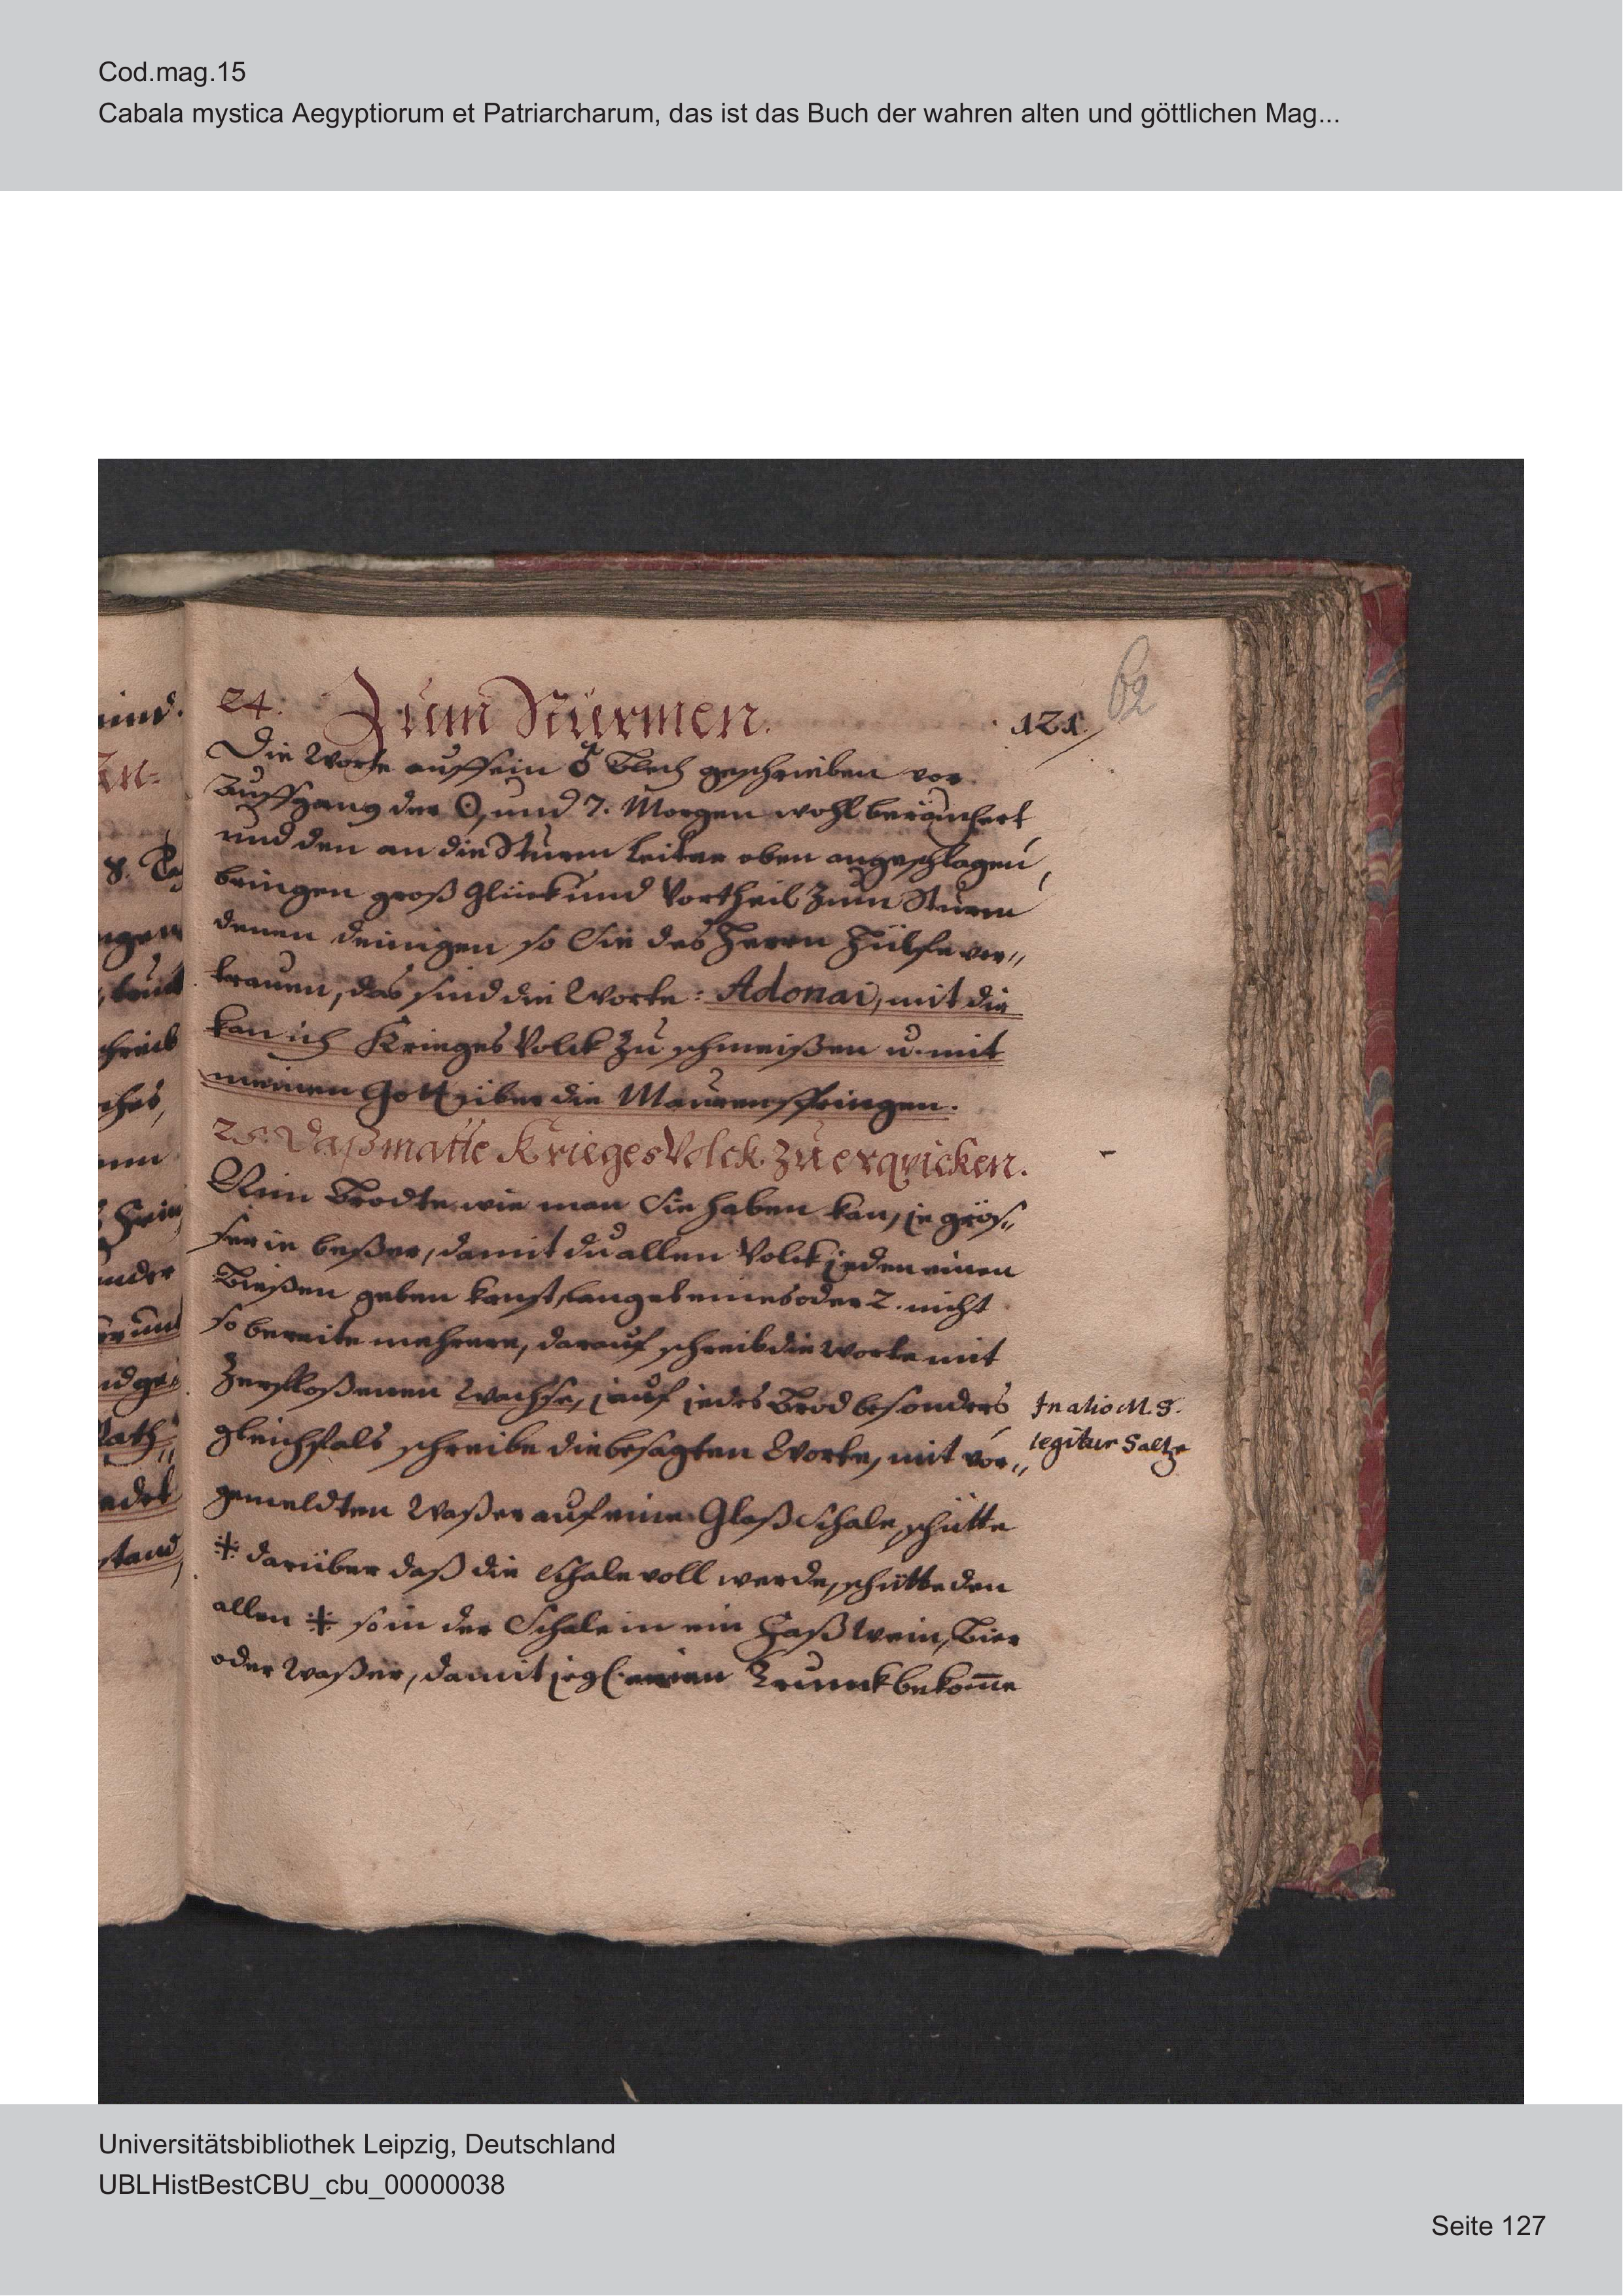 Cod.mag.15
Cabala mystica Aegyptiorum et Patriarcharum, das ist das Buch der wahren alten und göttlichen Mag...
62
24. Zum Stürmen. 121.
Die Worte auff ein ♂ Blech geschrieben vor
Auffgang der ☉, und 7. Morgen wohl beräuchert,
und den an die Sturm Leiter oben angeschlagen,
bringen groß Glück und Vortheil zum Sturm
denen deinigen so Sie des Herrn Hülfe ver„
trauen, das sind die Worte: Adonai, mit die
kan ich Krieges Volck zu schmeißen u. mit
meinen Gott über die Mauren springen.
25. Daß matte Krieges Volck zu erqvicken.
Nim Brodte wie man Sie haben kan, je grös„
ser ie beßer, damit du allen Volck jeden einen
Bießen geben kanst, langet eines oder 2. nicht
so bereite mehrere, darauf schreib die Worte mit
Zerfloßenen Wachse, auf jedes Brod besonders
In alio M.S.
legitur Saltze
gleichfals schreibe die besagten Worte, mit vor„
gemeldten Waßer auf eine Glaß Schale, schütte
⁜ darüber daß die Schale voll werde, schütte den
allen ⁜ so in der Schale in ein Faß Wein, Bier
oder Waßer, damit jegl. einen Trunck bekom̅e
mind.
8. Ta
ngen
schreib
ches,
under
nd ge„
Rath„
edet
stand,
Universitätsbibliothek Leipzig, Deutschland
UBLHistBestCBU_cbu_00000038
Seite 127